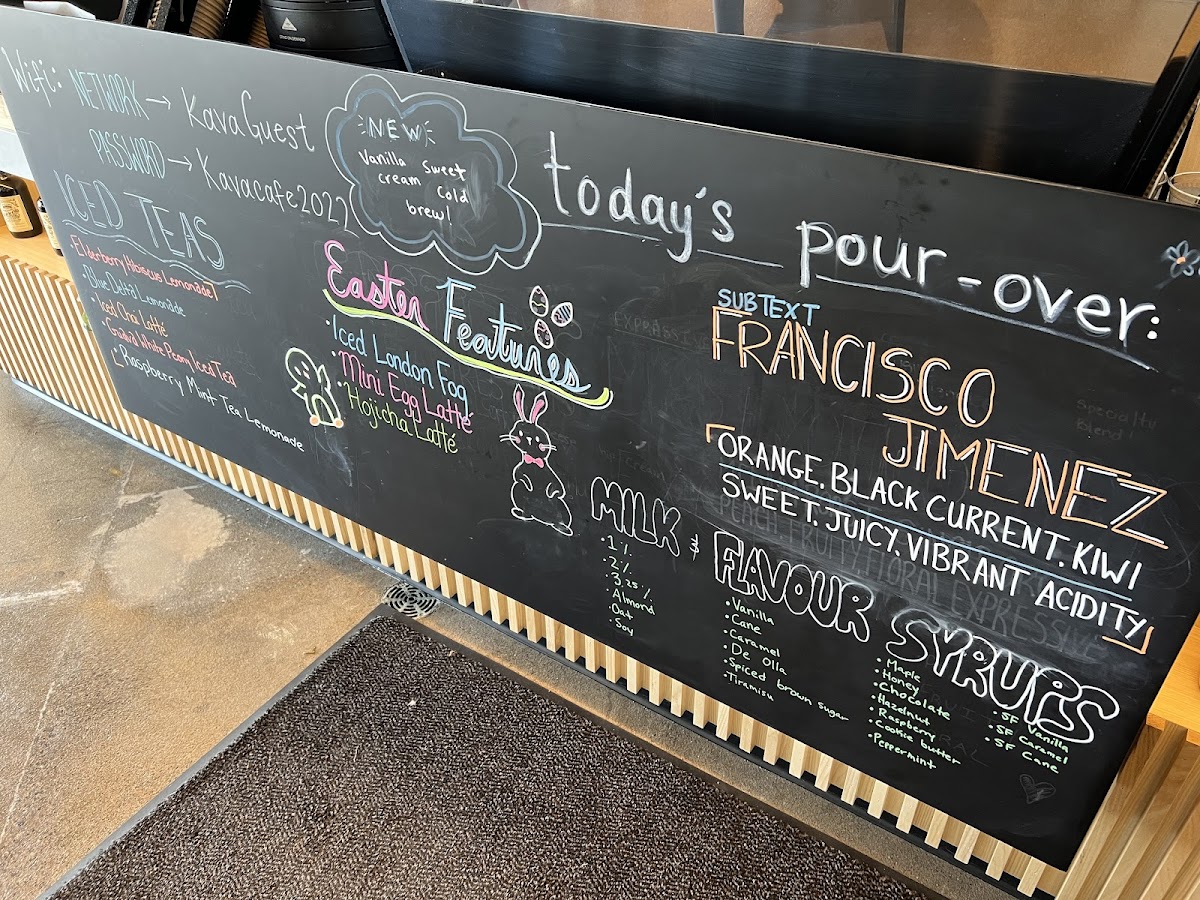 Wifi: NETWORK → KavaGuest
PASSWORD → Kavacafe2022
NEW
Vanilla Sweet
cream Cold
brew!
ICED TEAS
• Elderberry Hibiscus Lemonade!
• Blue Delta Lemonade
• Iced Chai Latté
• Guava White Peony Iced Tea
• Raspberry Mint Tea Lemonade
Easter Features
• Iced London Fog
• Mini Egg Latté
• Hojicha Latté
today's pour-over:
SUBTEXT
FRANCISCO
JIMENEZ
ORANGE. BLACK CURRENT. KIWI
SWEET. JUICY. VIBRANT ACIDITY
Specialty
blend!
PEACH, FRUITY, FLORAL EXPRESSIVE
MILK &
• 1%
• 2%
• 3.25%
• Almond
• Oat
• Soy
FLAVOUR SYRUPS
• Vanilla
• Cane
• Caramel
• De Olla
• Spiced brown sugar
• Tiramisu
• Maple
• Honey
• Chocolate
• Hazelnut
• Raspberry
• Cookie butter
• Peppermint
• SF Vanilla
• SF Caramel
• SF Cane